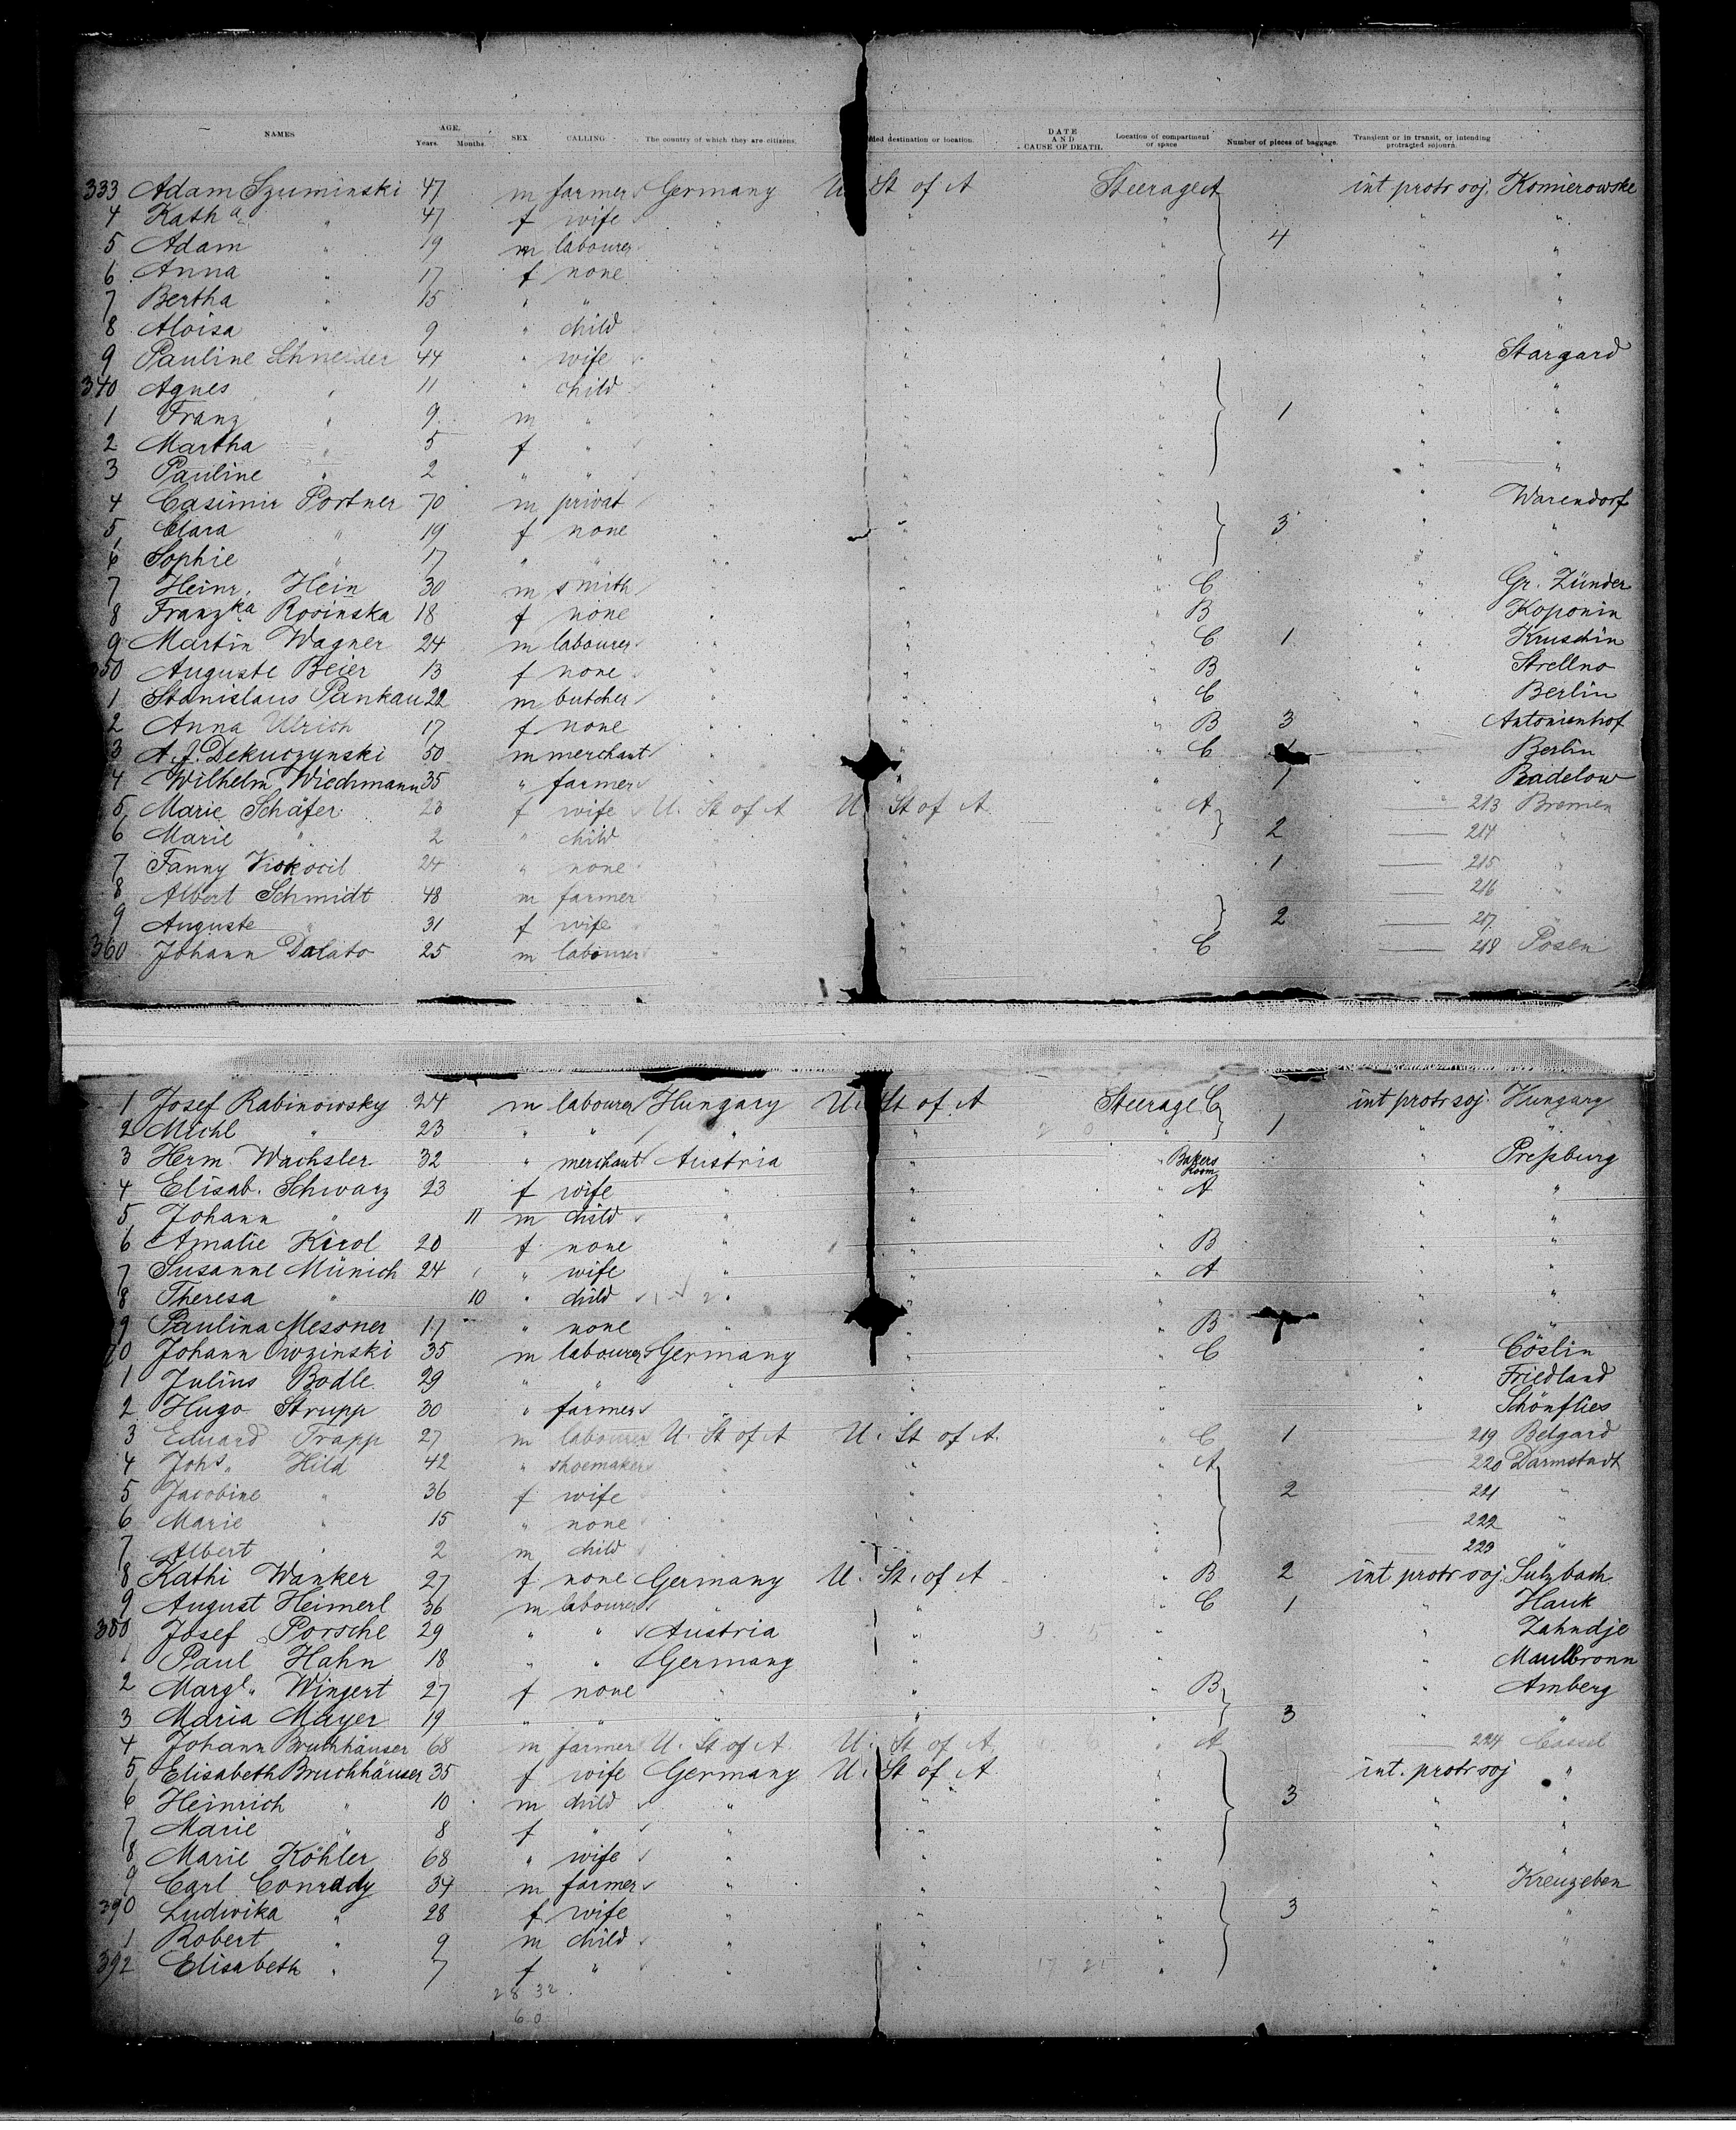 NAMES AGE. Years. Months. SEX CALLING The country of which they are citizens. destination or location. DATE AND CAUSE OF DEATH. Location of compartment or space Number of pieces of baggage. Transient or in transit, or intending protracted sojourn.
333 Adam Szuminski 47 m farmer Germany U. St of A Steerage A int protr soj. Komierowske
4 Katha " 47 f wife " " " " "
5 Adam " 19 m labourer " " " 4 " "
6 Anna " 17 f none " " " " "
7 Bertha " 15 " " " " " " "
8 Aloisa " 9 " child " " " " "
9 Pauline Schneider 44 " wife " " " " Stargard
340 Agnes " 11 " child " " " " "
1 Franz " 9 m " " " " 1 " "
2 Martha " 5 f " " " " " "
3 Pauline " 2 " " " " " " "
4 Casimir Portner 70 m privat " " " " Warendorf
5 Clara " 19 f none " " " 3 " "
6 Sophie " 17 " " " " " " "
7 Heinr. Hein 30 m smith " " " C " Gr. Zünder
8 Franzka Rosinska 18 f none " " " B " Koponin
9 Martin Wagner 24 m labourer " " " C 1 " Kruschin
350 Auguste Beier 13 f none " " " B " Strellno
1 Stanislaus Pankau 22 m butcher " " " C " Berlin
2 Anna Ulrich 17 f none " " " B 3 " Antonienhof
3 A. J. Dekuczynski 50 m merchant " " " C " Berlin
4 Wilhelm Wiechmann 35 " farmer " " " 1 " Badelow
5 Marie Schäfer 23 f wife U. St of A U. St of A " A 213 Bremen
6 Marie " 2 " child " " " 2 214 "
7 Fanny Viskocil 24 " none " " " 1 215 "
8 Albert Schmidt 48 m farmer " " " 216 "
9 Auguste " 31 f wife " " " 2 217 "
360 Johann Dalato 25 m labourer " " " C 218 Posen
1 Josef Rabinowsky 24 m labourer Hungary U. St of A Steerage C int protr soj. Hungary
2 Michl " 23 " " " " " 1 " "
3 Herm. Wachsler 32 " merchant Austria " " Bakers room " Preßburg
4 Elisab. Schwarz 23 f wife " " " A " "
5 Johann " 11 m child " " " " "
6 Amalie Karol 20 f none " " " B " "
7 Susanne Münich 24 " wife " " " A " "
8 Theresa " 10 " child " " " " "
9 Paulina Messner 17 " none " " " B " "
70 Johann Owzinski 35 m labourer Germany " " C " Cöslin
1 Julius Bodle 29 " " " " " " Friedland
2 Hugo Strupp 30 " farmer " " " " Schönflies
3 Eduard Trapp 27 m labourer U. St of A U. St of A. " C 1 219 Belgard
4 Johs. Hild 42 " shoemaker " " " A 220 Darmstadt
5 Jacobine " 36 f wife " " " 2 221 "
6 Marie " 15 " none " " " 222 "
7 Albert " 2 m child " " " 223 "
8 Kathi Wanker 27 f none Germany U. St. of A " B 2 int protr soj. Sulzbach
9 August Heimerl 36 m labourer " " " C 1 " Hauk
380 Josef Porsche 29 " " Austria " " " Zahndje
1 Paul Hahn 18 " " Germany " " " Maulbronn
2 Margt. Wingert 27 f none " " " B " Amberg
3 Maria Mayer 19 " " " " " 3 " "
4 Johann Bruchhäuser 68 m farmer U. St of A. U. St of A. " A 224 Cassel
5 Elisabeth Bruchhäuser 35 f wife Germany U. St of A " int. protr soj "
6 Heinrich " 10 m child " " " 3 " "
7 Marie " 8 f " " " " " "
8 Marie Köhler 68 " wife " " " " "
9 Carl Conrady 34 m farmer " " " " Kreuzeben
390 Ludwika " 28 f wife " " " 3 " "
1 Robert " 9 m child " " " " "
392 Elisabeth " 7 f " " " " " "
28 32
60